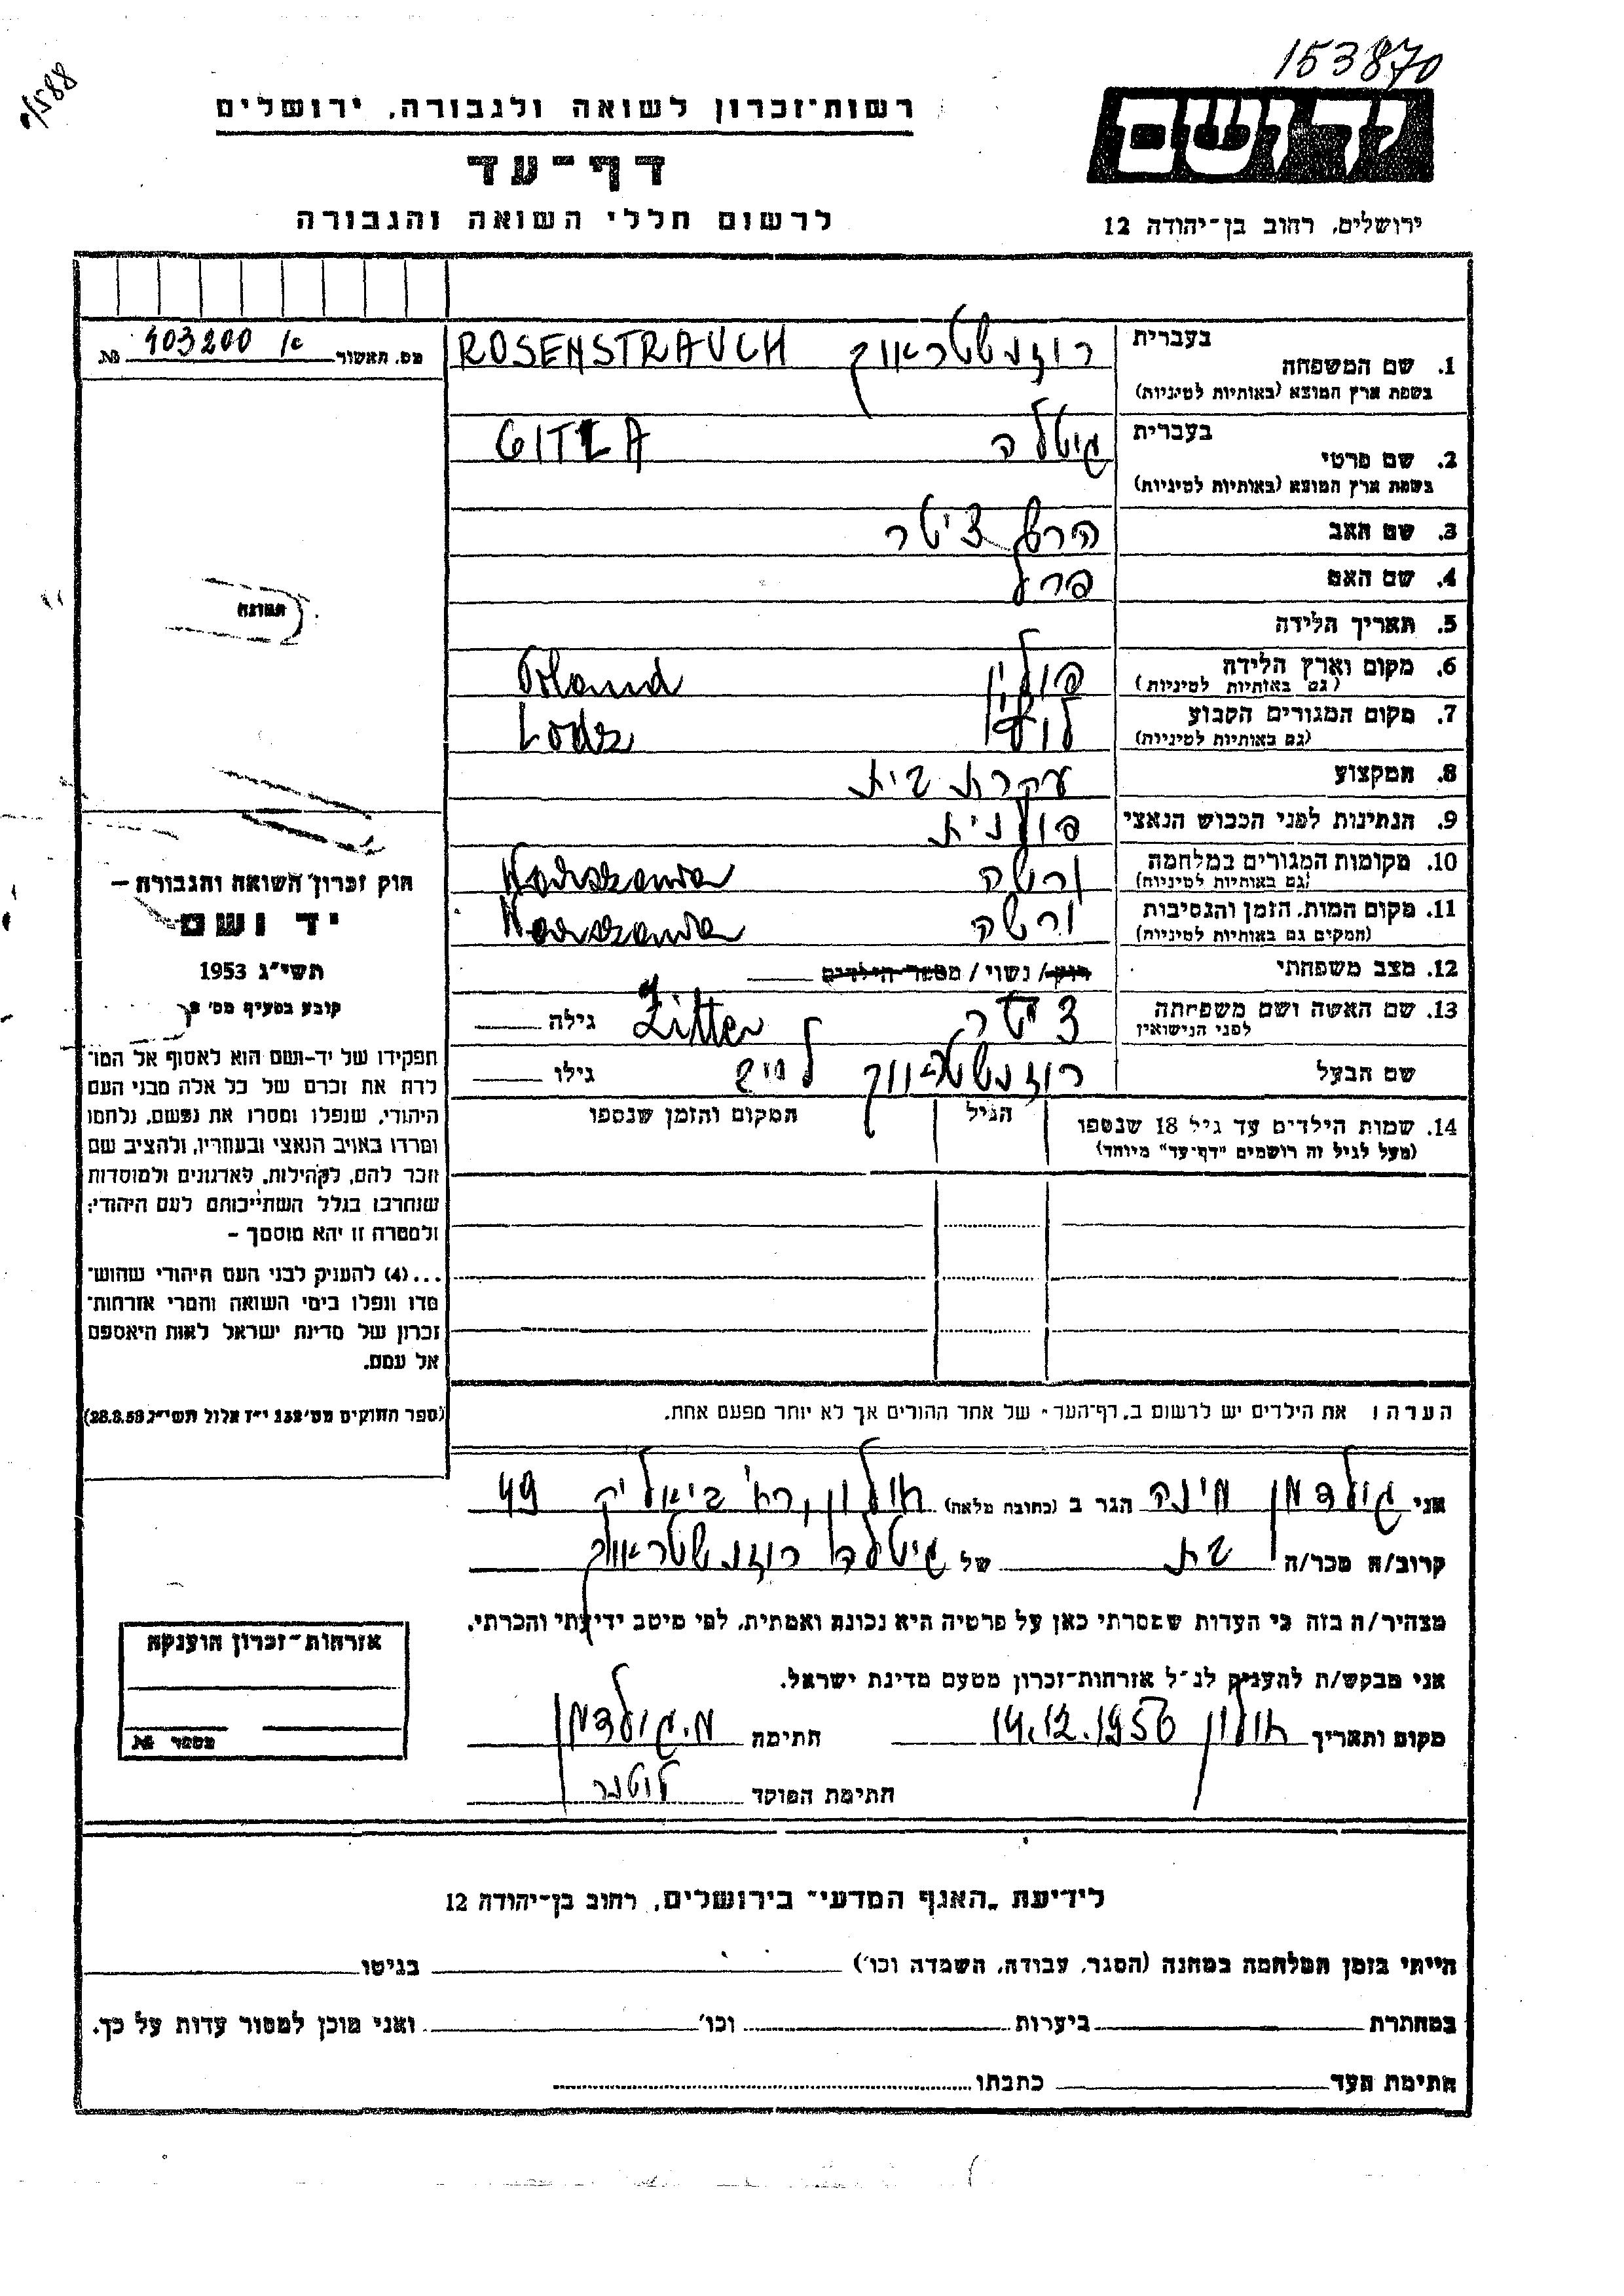 153870
1/588
יד ושם
רשות־זכרון לשואה ולגבורה, ירושלים
דף־עד
לרשום חללי השואה והגבורה
ירושלים, רחוב בן־יהודה 12
מס. תאשור 403200 №
1. שם המשפחה בעברית רוזנשטראוך ROSENSTRAUCH
בשפת ארץ המוצא (באותיות לטיניות)
2. שם פרטי בעברית גיטלה GITLA
בשפת ארץ המוצא (באותיות לטיניות)
3. שם האב הרש ציטר
4. שם האם פרל
5. תאריך הלידה
6. מקום וארץ הלידה פולין Poland
(גם באותיות לטיניות)
7. מקום המגורים הקבוע לודז' Lodz
(גם באותיות לטיניות)
8. המקצוע עקרת בית
9. הנתינות לפני הכבוש הנאצי פולנית
10. מקומות המגורים במלחמה ורשה Warszawa
(גם באותיות לטיניות)
11. מקום המות, הזמן והנסיבות ורשה Warszawa
(המקום גם באותיות לטיניות)
12. מצב משפחתי רוק/ נשוי / מספר הילדים
13. שם האשה ושם משפחתה ציטר Zitter גילה
לפני הנישואין
שם הבעל רוזנשטראוך גילו
14. שמות הילדים עד גיל 18 שנספו הגיל המקום והזמן שנספו
(מעל לגיל זה רושמים "דף־עד" מיוחד)
תמונה
חוק זכרון השואה והגבורה –
יד ושם
תשי"ג 1953
קובע בסעיף מס'
תפקידו של יד-ושם הוא לאסוף אל המו־
לדת את זכרם של כל אלה מבני העם
היהודי, שנפלו ומסרו את נפשם, נלחמו
ומרדו באויב הנאצי ובעוזריו, ולהציב שם
וזכר להם, לקהילות, לארגונים ולמוסדות
שנחרבו בגלל השתייכותם לעם היהודי;
ולמטרה זו יהא מוסמך –
...(4) להעניק לבני העם היהודי שהוש־
מדו ונפלו בימי השואה והמרי אזרחות־
זכרון של מדינת ישראל לאות היאספם
אל עמם.
(ספר החוקים מס' 132 י"ז אלול תשי"ג 28.8.53)
הערה: את הילדים יש לרשום ב„דף־העד" של אחד ההורים אך לא יותר מפעם אחת.
אני גולדמן מינה הגר ב (כתובת מלאה) חולון, רח' ביאליק 49
קרוב/ה מכר/ה בת של גיטלה רוזנשטראוך
מצהיר/ה בזה כי העדות שמסרתי כאן על פרטיה היא נכונה ואמתית, לפי מיטב ידיעתי והכרתי.
אני מבקש/ת להעניק לנ"ל אזרחות־זכרון מטעם מדינת ישראל.
מקום ותאריך חולון 14.12.1956 חתימה מ. גולדמן
חתימת הפוקד
אזרחות־זכרון הוענקה
מספר №
לידיעת „האגף המדעי" בירושלים, רחוב בן־יהודה 12
הייתי בזמן המלחמה במחנה (הסגר, עבודה, השמדה וכו') בגיטו
במחתרת ביערות וכו' ואני מוכן למסור עדות על כך.
חתימת העד כתבתו